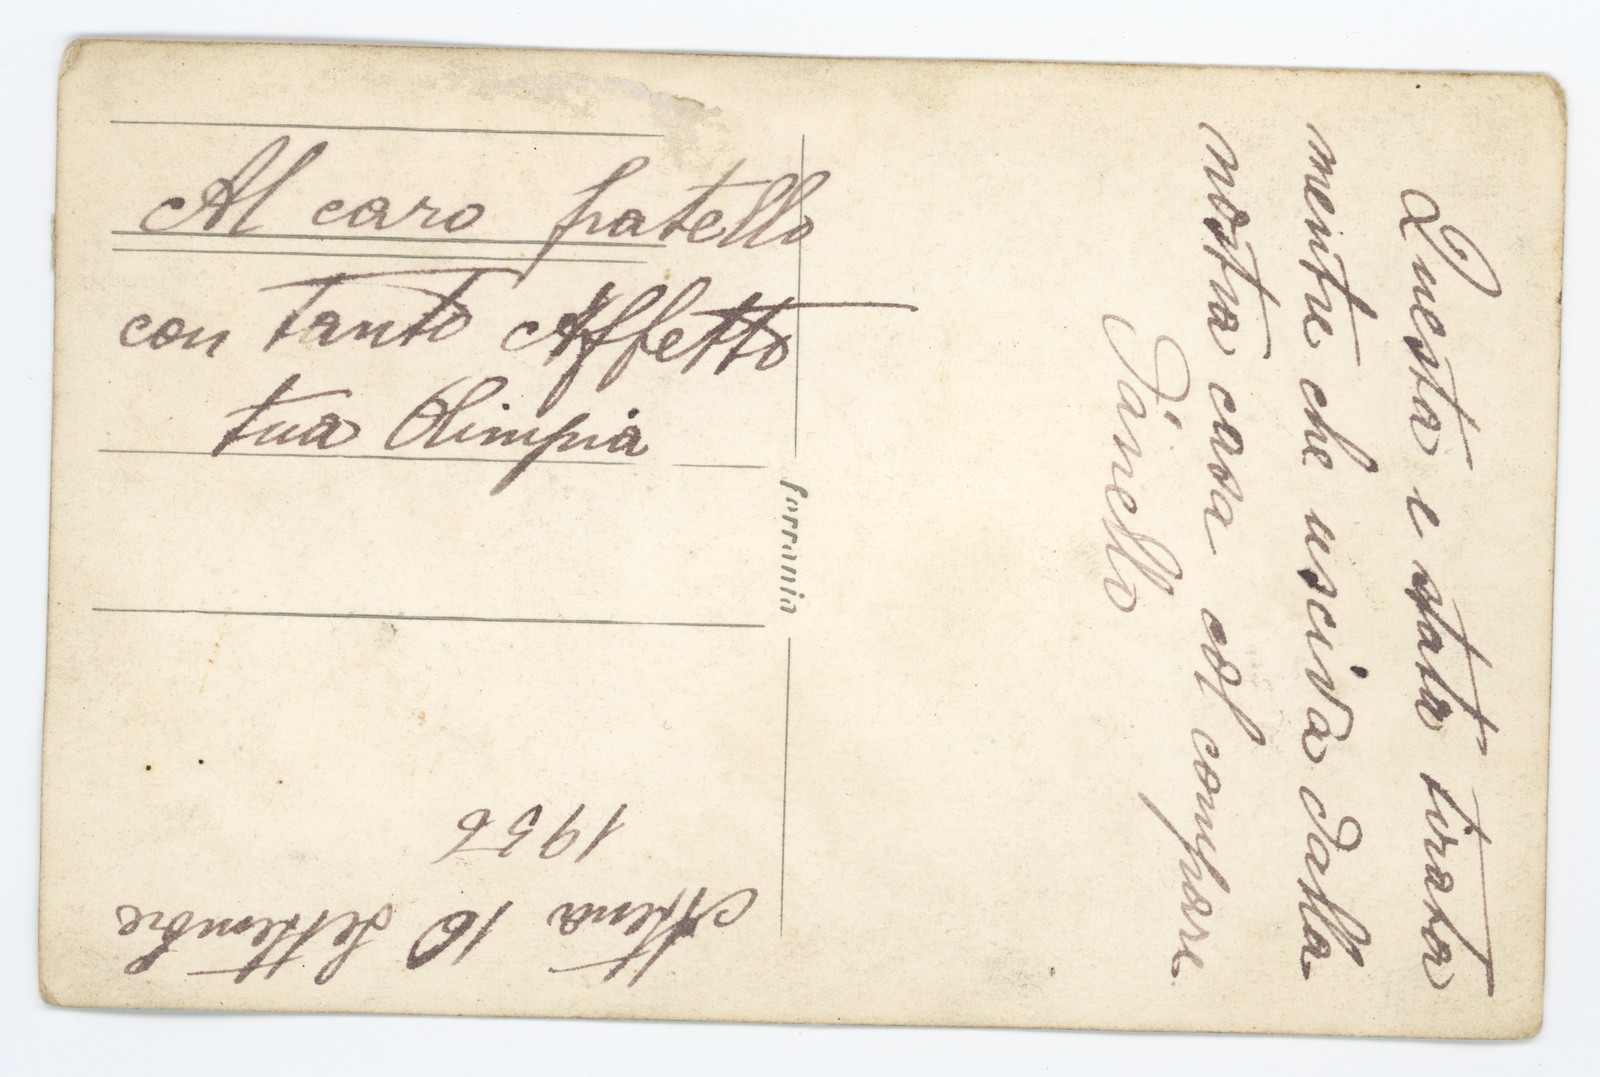 Al caro fratello
con tanto Affetto
tua Olimpia
ferrania
Questa e stata tirata
mentre che usciva dalla
nostra casa col compare
Atena 10 Settembre
1956